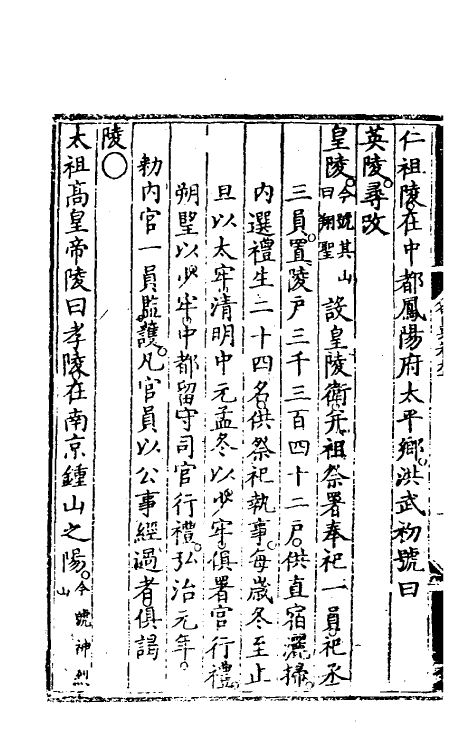 仁祖陵。在中都鳳陽府太平鄉。洪武初號曰
英陵。尋改
皇陵。今號其山曰翔聖設皇陵衛并祖祭署。奉祀一員。祀丞
三員。置陵戶三千三百四十二戶。供直宿灑掃。
內選禮生二十四名。供祭祀執事。每歲冬至止
旦以太牢。清明中元孟冬以少牢。俱署官行禮。
朔望以少牢。中都留守司官行禮。弘治元年。
勑內官一員監護。凡官員以公事經過者俱謁
陵○
太祖高皇帝陵曰孝陵。在南京鍾山之陽。今號神烈山